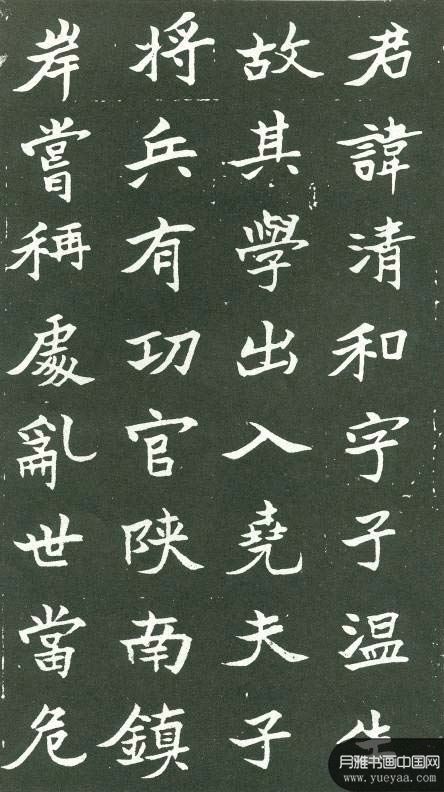 君諱清和字子温生
故其學出入堯夫子
將兵有功官陝南鎮
岸嘗稱處亂世當危
月雅书画中国网
www.yueyaa.com